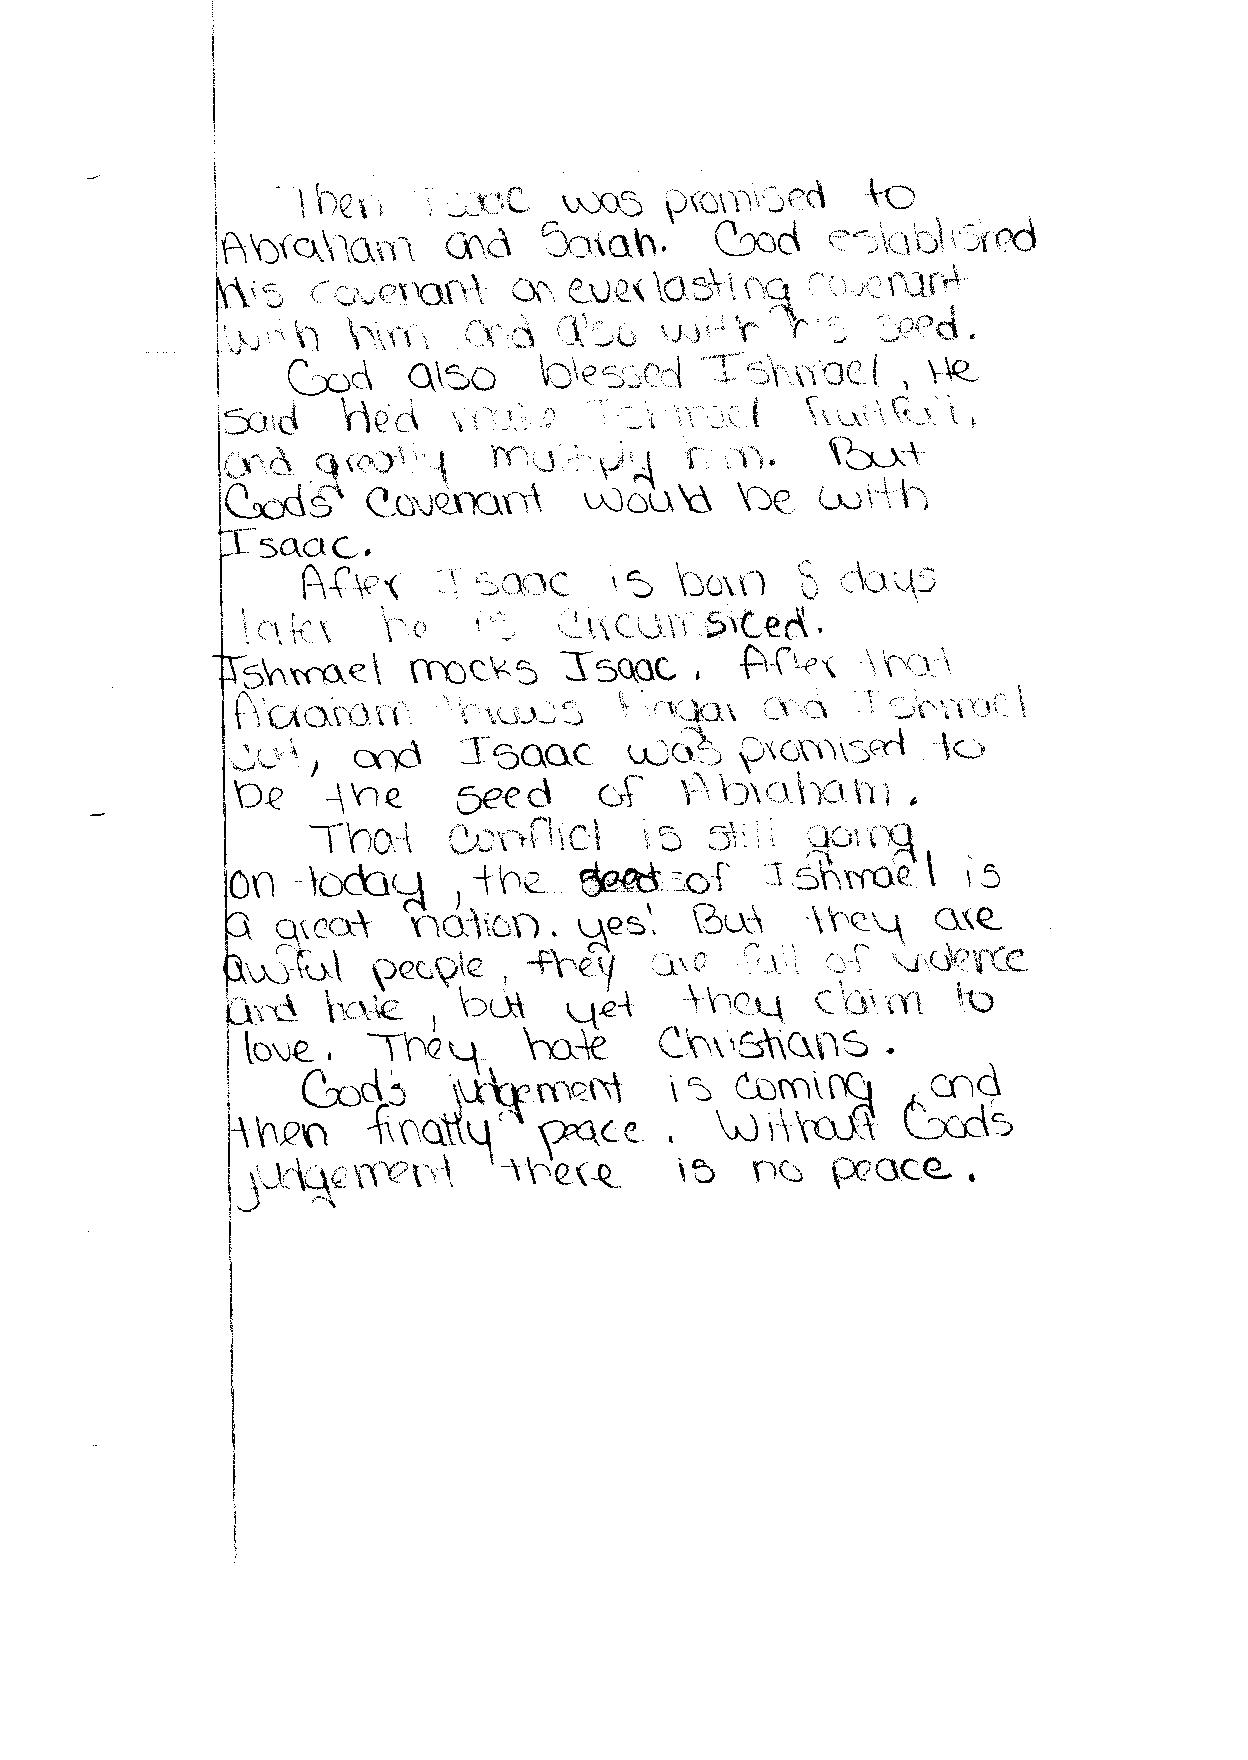 Then Isaac was promised to
Abraham and Sarah. God established
His covenant an everlasting covenant
with him and also with his seed.
God also blessed Ishmael, He
said He'd make Ishmael fruitful,
and greatly multiply him. But
Gods' Covenant would be with
Isaac.
After Isaac is born 8 days
later he is circumsiced.
Ishmael mocks Isaac. After that
Abraham throws Hagar and Ishmael
out, and Isaac was promised to
be the seed of Abraham.
That Conflict is still going
on today, the seed of Ishmael is
a great nation. yes! But they are
awful people, they are full of violence
and hate, but yet they claim to
love. They hate Christians.
God's judgement is coming, and
then finally peace. Without God's
judgement there is no peace.